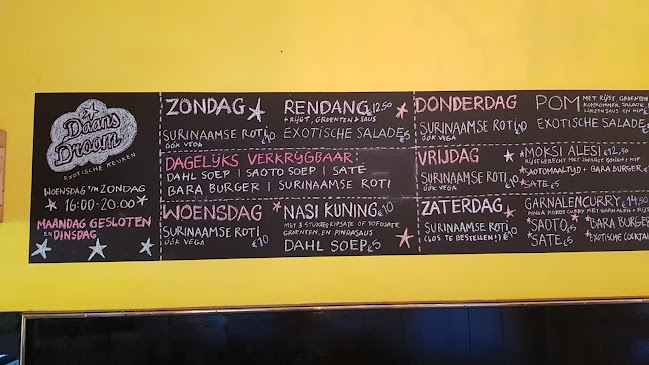 Daans
Droom
EXOTISCHE KEUKEN
WOENSDAG T/M ZONDAG
16:00-20:00
MAANDAG GESLOTEN
EN DINSDAG
ZONDAG
SURINAAMSE ROTI €10
OOK VEGA
RENDANG €12,50
+ RIJST, GROENTEN & SAUS
EXOTISCHE SALADE €5
DAGELIJKS VERKRIJGBAAR:
DAHL SOEP | SAOTO SOEP | SATÉ
BARA BURGER | SURINAAMSE ROTI
WOENSDAG
SURINAAMSE ROTI €10
OOK VEGA
NASI KUNING €10
MET 3 STUKJES KIPSATE OF TOFUSATE,
GROENTEN EN PINDASAUS
DAHL SOEP €5
DONDERDAG
SURINAAMSE ROTI €10
OOK VEGA
POM
MET RIJST, GROENTEN
KOMKOMMER SALADE
LINZENSAUS EN KIP
EXOTISCHE SALADE €5
VRIJDAG
SURINAAMSE ROTI €10
OOK VEGA
MOKSI ALESI €12,50
RIJSTGERECHT MET ZWARTE BONEN + KIP
SAOTOMAALTIJD + BARA BURGER
SATE €5
ZATERDAG
SURINAAMSE ROTI €10
(LOS TE BESTELLEN!)
GARNALENCURRY €14,50
KOKOS CURRY MET GARNALEN + RIJST
SAOTO €5
BARA BURGER
SATE €5
EXOTISCHE COCKTAIL